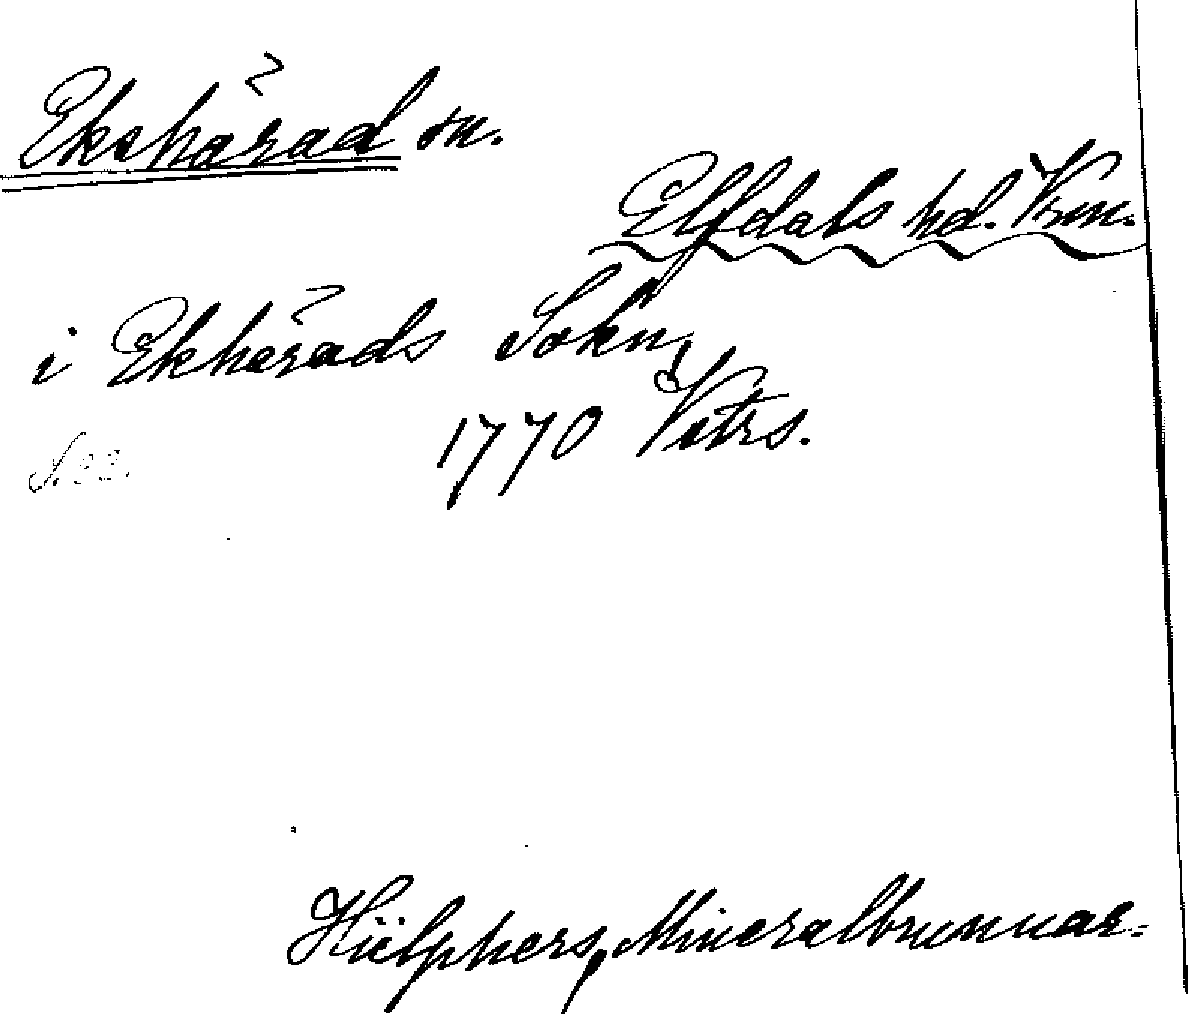 Ekshärad sn.
Elfdals hd. Vrm.
i Ekhärads Sokn,
1770 Vitrs.
S. 22.
Hülphers, Mineralbrunnar.